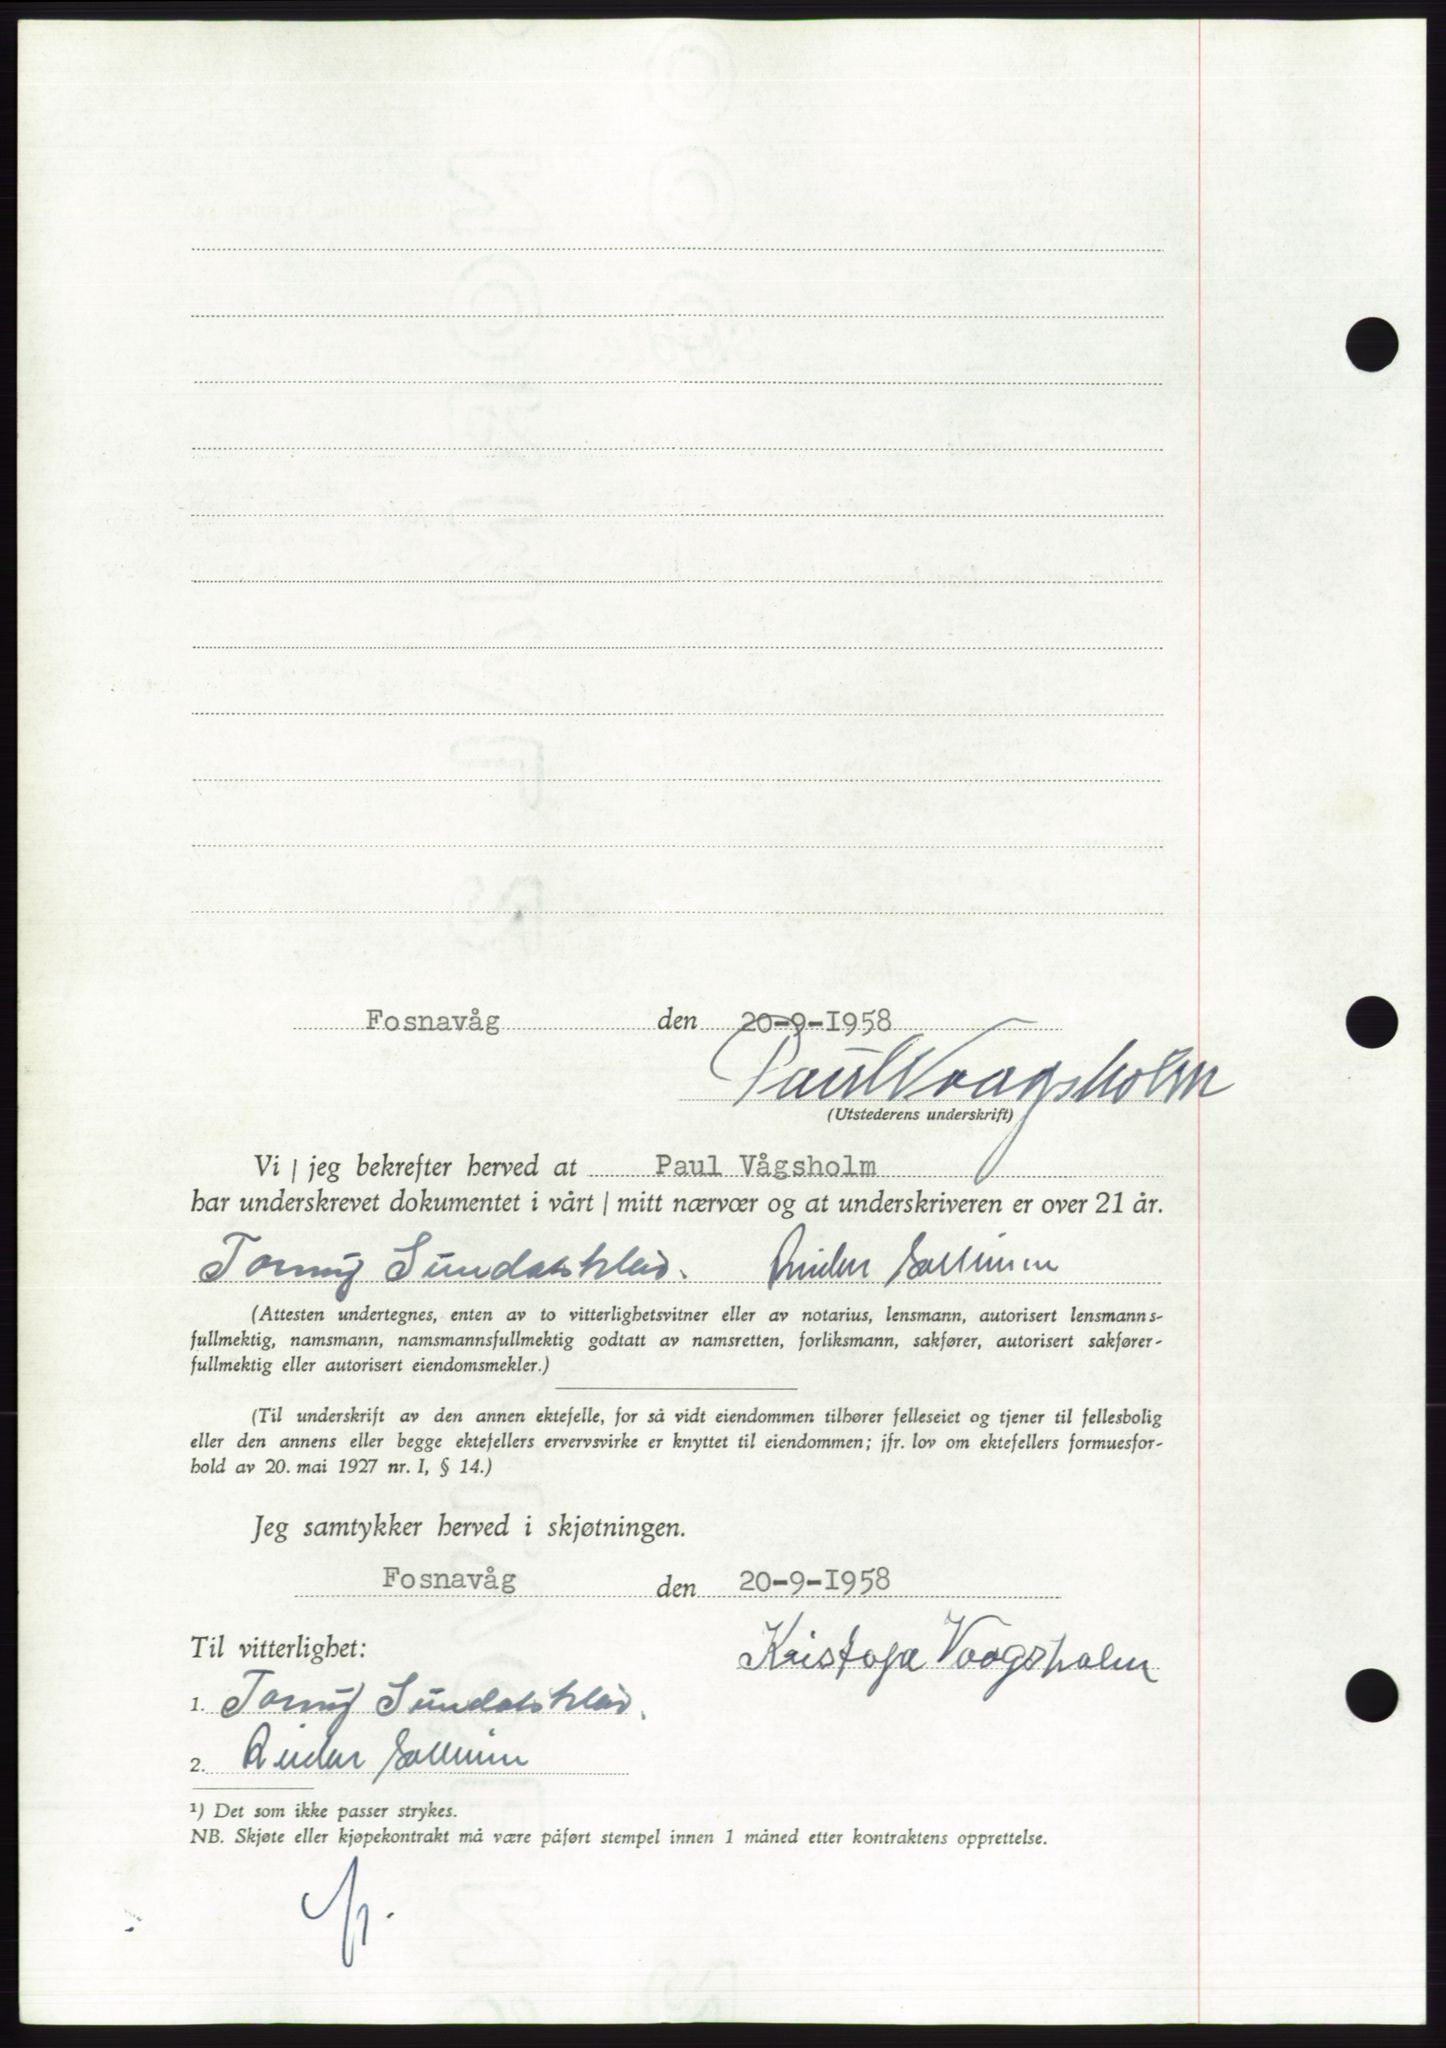 Fosnavåg den 20-9-1958
Paul Vaagsholm
(Utstederens underskrift)
Vi / jeg bekrefter herved at Paul Vågsholm
har underskrevet dokumentet i vårt / mitt nærvær og at underskriveren er over 21 år.
(Attesten undertegnes, enten av to vitterlighetsvitner eller av notarius, lensmann, autorisert lensmanns-
fullmektig, namsmann, namsmannsfullmektig godtatt av namsretten, forliksmann, sakfører, autorisert sakfører-
fullmektig eller autorisert eiendomsmekler.)
(Til underskrift av den annen ektefelle, for så vidt eiendommen tilhører felleseiet og tjener til fellesbolig
eller den annens eller begge ektefellers ervervsvirke er knyttet til eiendommen; jfr. lov om ektefellers formuesfor-
hold av 20. mai 1927 nr. 1, § 14.)
Jeg samtykker herved i skjøtningen.
Fosnavåg den 20-9-1958
Til vitterlighet: Kristofa Vaagsholm
1.
2.
¹) Det som ikke passer strykes.
NB. Skjøte eller kjøpekontrakt må være påført stempel innen 1 måned etter kontraktens opprettelse.